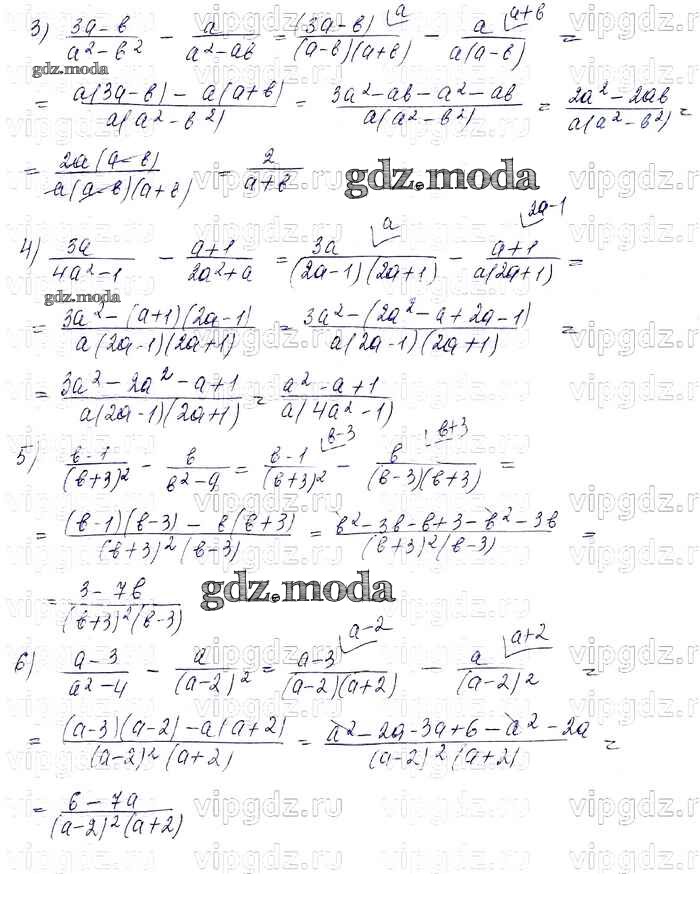 3) (3a-в)/(a²-в²) - a/(a²-aв) = (3a-в)/((a-в)(a+в)) a - a/(a(a-в)) a+в =
gdz.moda
= (a(3a-в) - a(a+в))/(a(a²-в²)) = (3a²-aв-a²-aв)/(a(a²-в²)) = (2a²-2aв)/(a(a²-в²)) =
= (2a(a-в))/(a(a-в)(a+в)) = 2/(a+в)
gdz.moda
4) 3a/(4a²-1) - (a+1)/(2a²+a) = 3a/((2a-1)(2a+1)) a - (a+1)/(a(2a+1)) 2a-1 =
gdz.moda
= (3a²-(a+1)(2a-1))/(a(2a-1)(2a+1)) = (3a²-(2a²-a+2a-1))/(a(2a-1)(2a+1)) =
= (3a²-2a²-a+1)/(a(2a-1)(2a+1)) = (a²-a+1)/(a(4a²-1))
5) (в-1)/(в+3)² - в/(в²-9) = (в-1)/(в+3)² в-3 - в/((в-3)(в+3)) в+3 =
= ((в-1)(в-3) - в(в+3))/((в+3)²(в-3)) = (в²-3в-в+3-в²-3в)/((в+3)²(в-3)) =
= (3-7в)/((в+3)²(в-3))
gdz.moda
6) (a-3)/(a²-4) - a/(a-2)² = (a-3)/((a-2)(a+2)) a-2 - a/(a-2)² a+2 =
= ((a-3)(a-2)-a(a+2))/((a-2)²(a+2)) = (a²-2a-3a+6-a²-2a)/((a-2)²(a+2)) =
= (6-7a)/((a-2)²(a+2))
vipgdz.ru